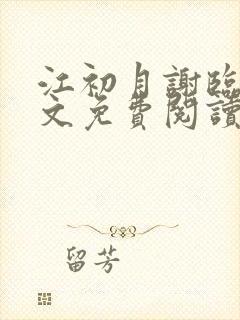 江初月謝臨
文免費閱讀
留芳